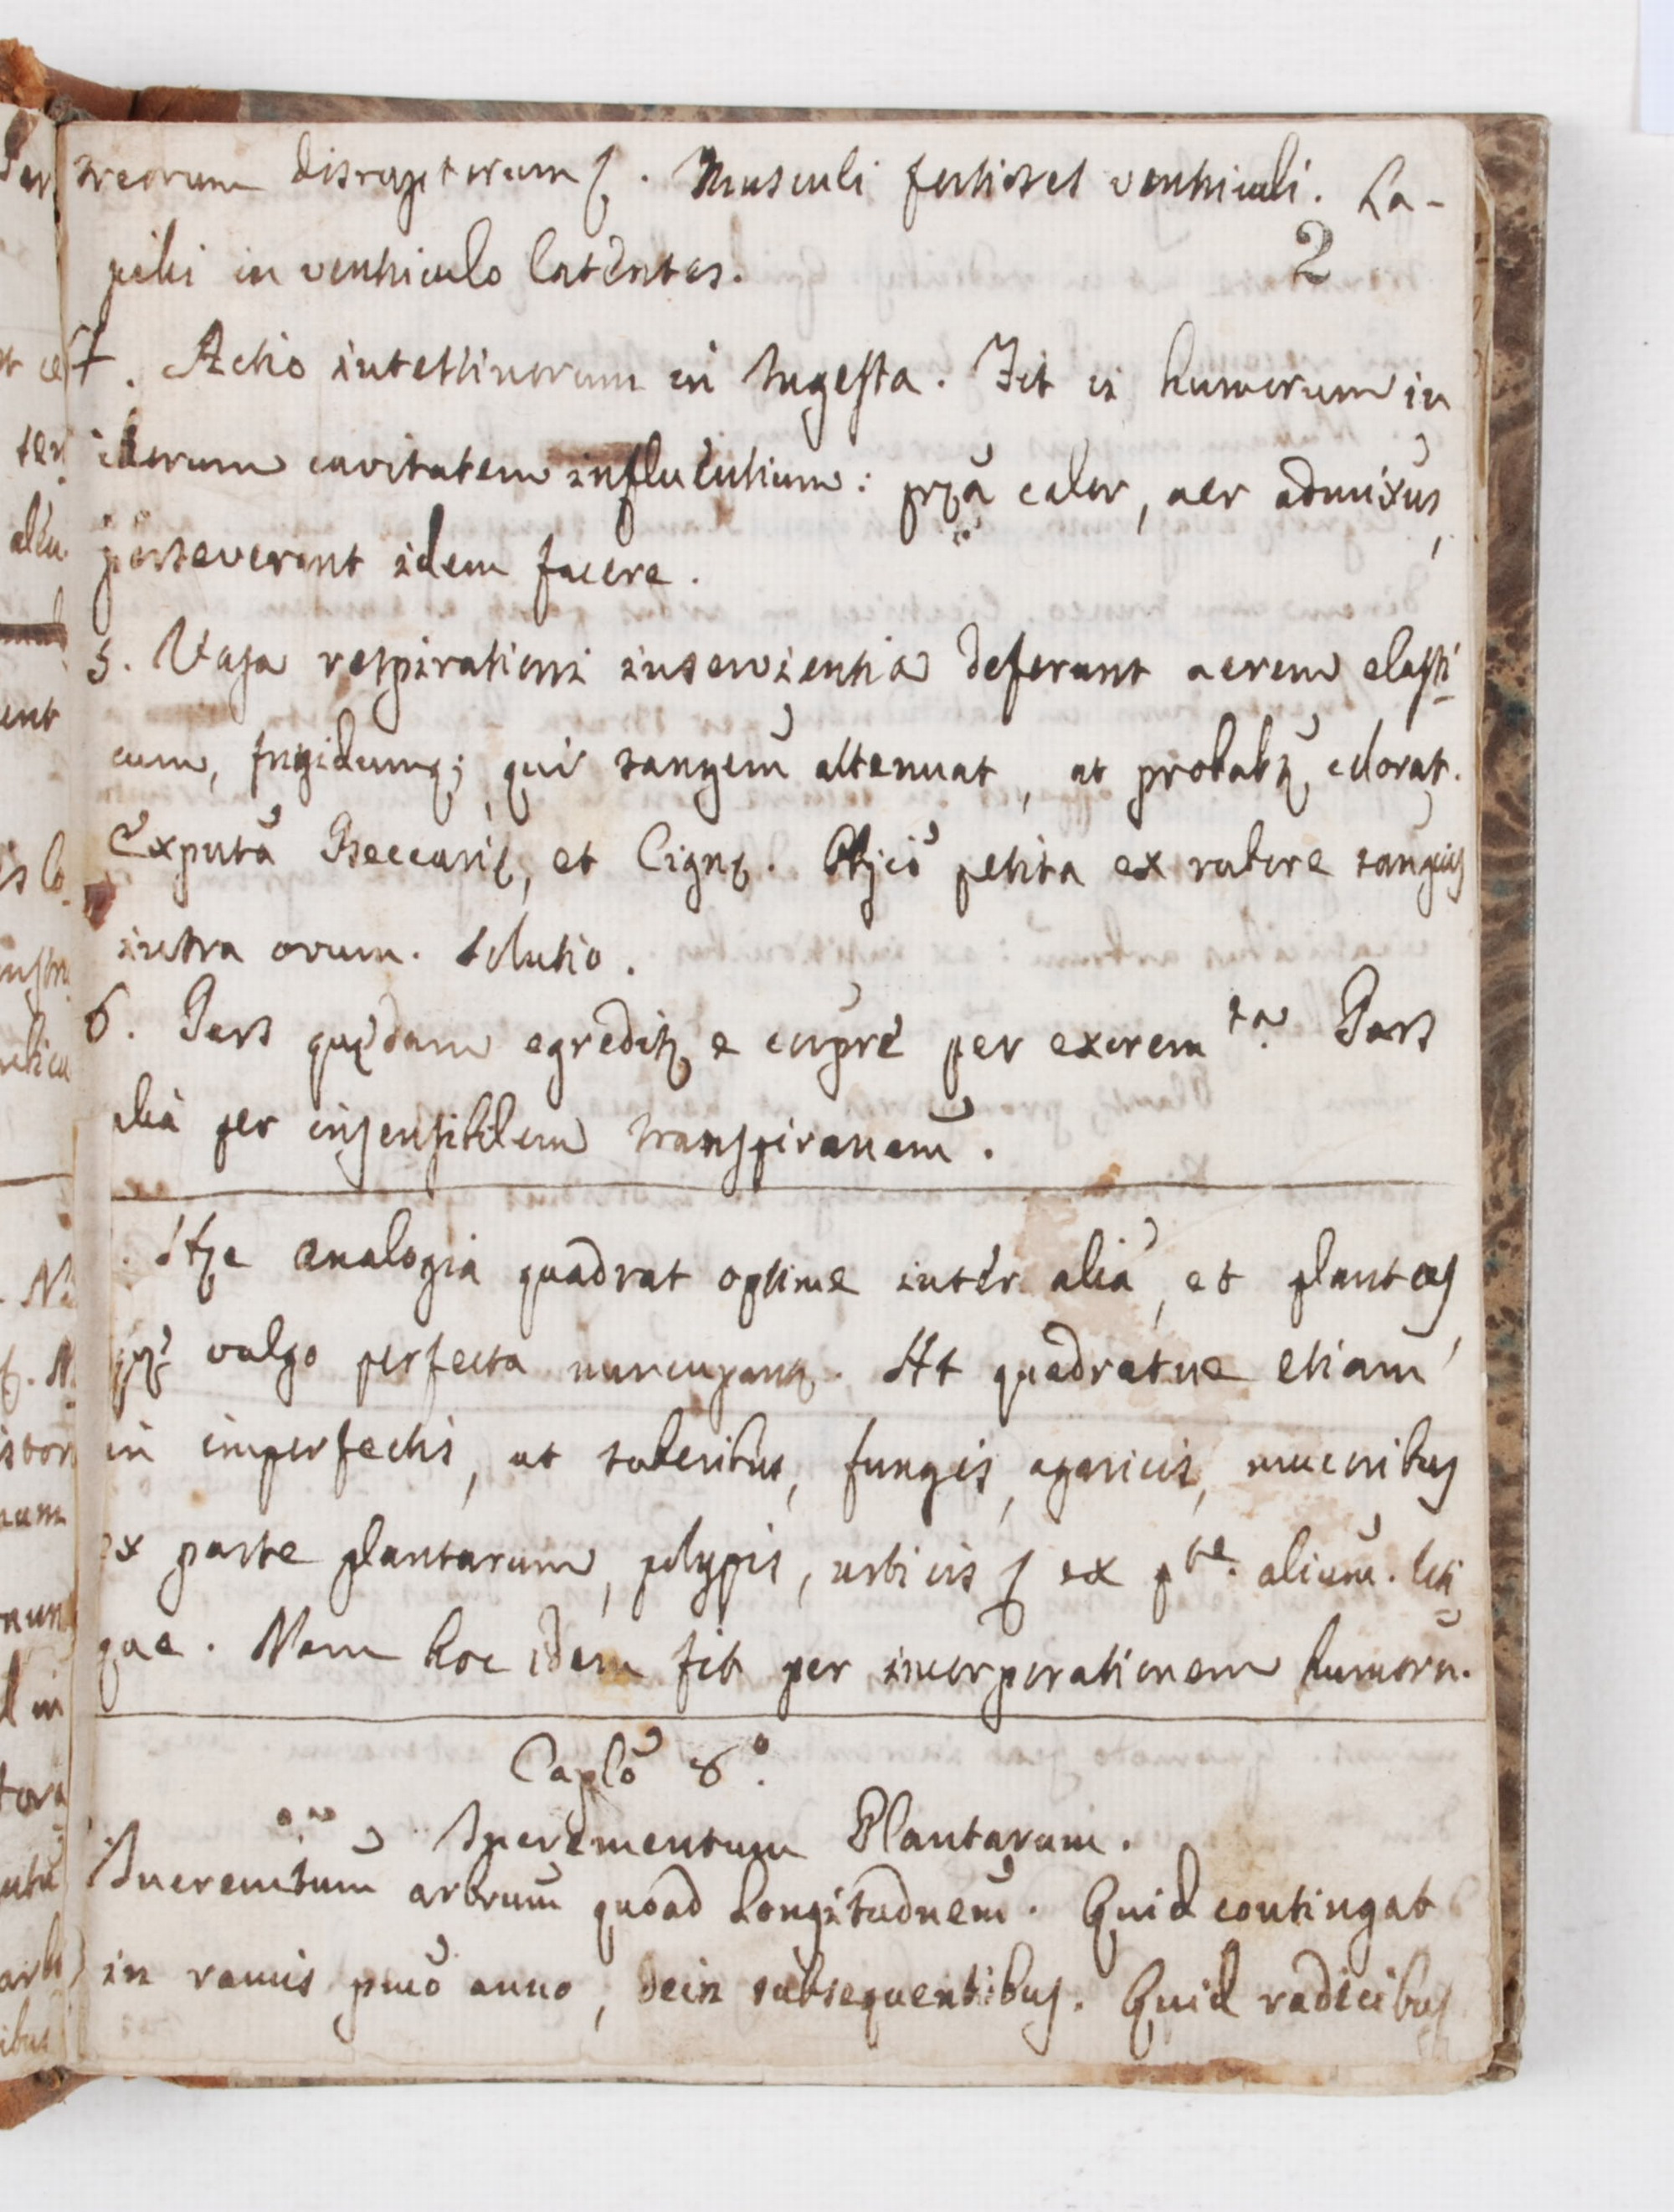 treorum disruptorum &. Musculi fortiores ventriculi. La-
pilli in ventriculo latentes.
2
4. Actio intestinorum in Ingesta. Fit vi humorum in
illorum cavitatem influentium: prã calor, aer admixus,
perseverant idem facere.
5. Vasa respirationi inservientia deferunt aerem elasti-
cum, frigidumq; qui sanguem̃ attenuat, ut probabr, colorat.
Experta Beccarię, et Cignę. Objcio petita ex rubore sanguis
intra ovum. Solutio.
6. Pars quędam egreditr e corpre per excrem.ta Pars
alia per insensibilem transpiranem̃.
Hæc analogia quadrat optime inter alia, et plantas
quę vulgo perfecta nuncupantr. At quadratne etiam
in imperfectis, ut tuberibus, fungis, agaricis, mucoribus
ex parte plantarum, polypis, urticis & ex p.te alium. Uti-
que. Nam hoc idem fit per incorporationem humorũ.
Caplõ 8.o
Incrementum Plantarum.
Incremtum̃ arbrum̃ quoad Longitudnem̃. Quid contingat
in ramis pmõ anno, dein subsequentibus. Quid radicibus